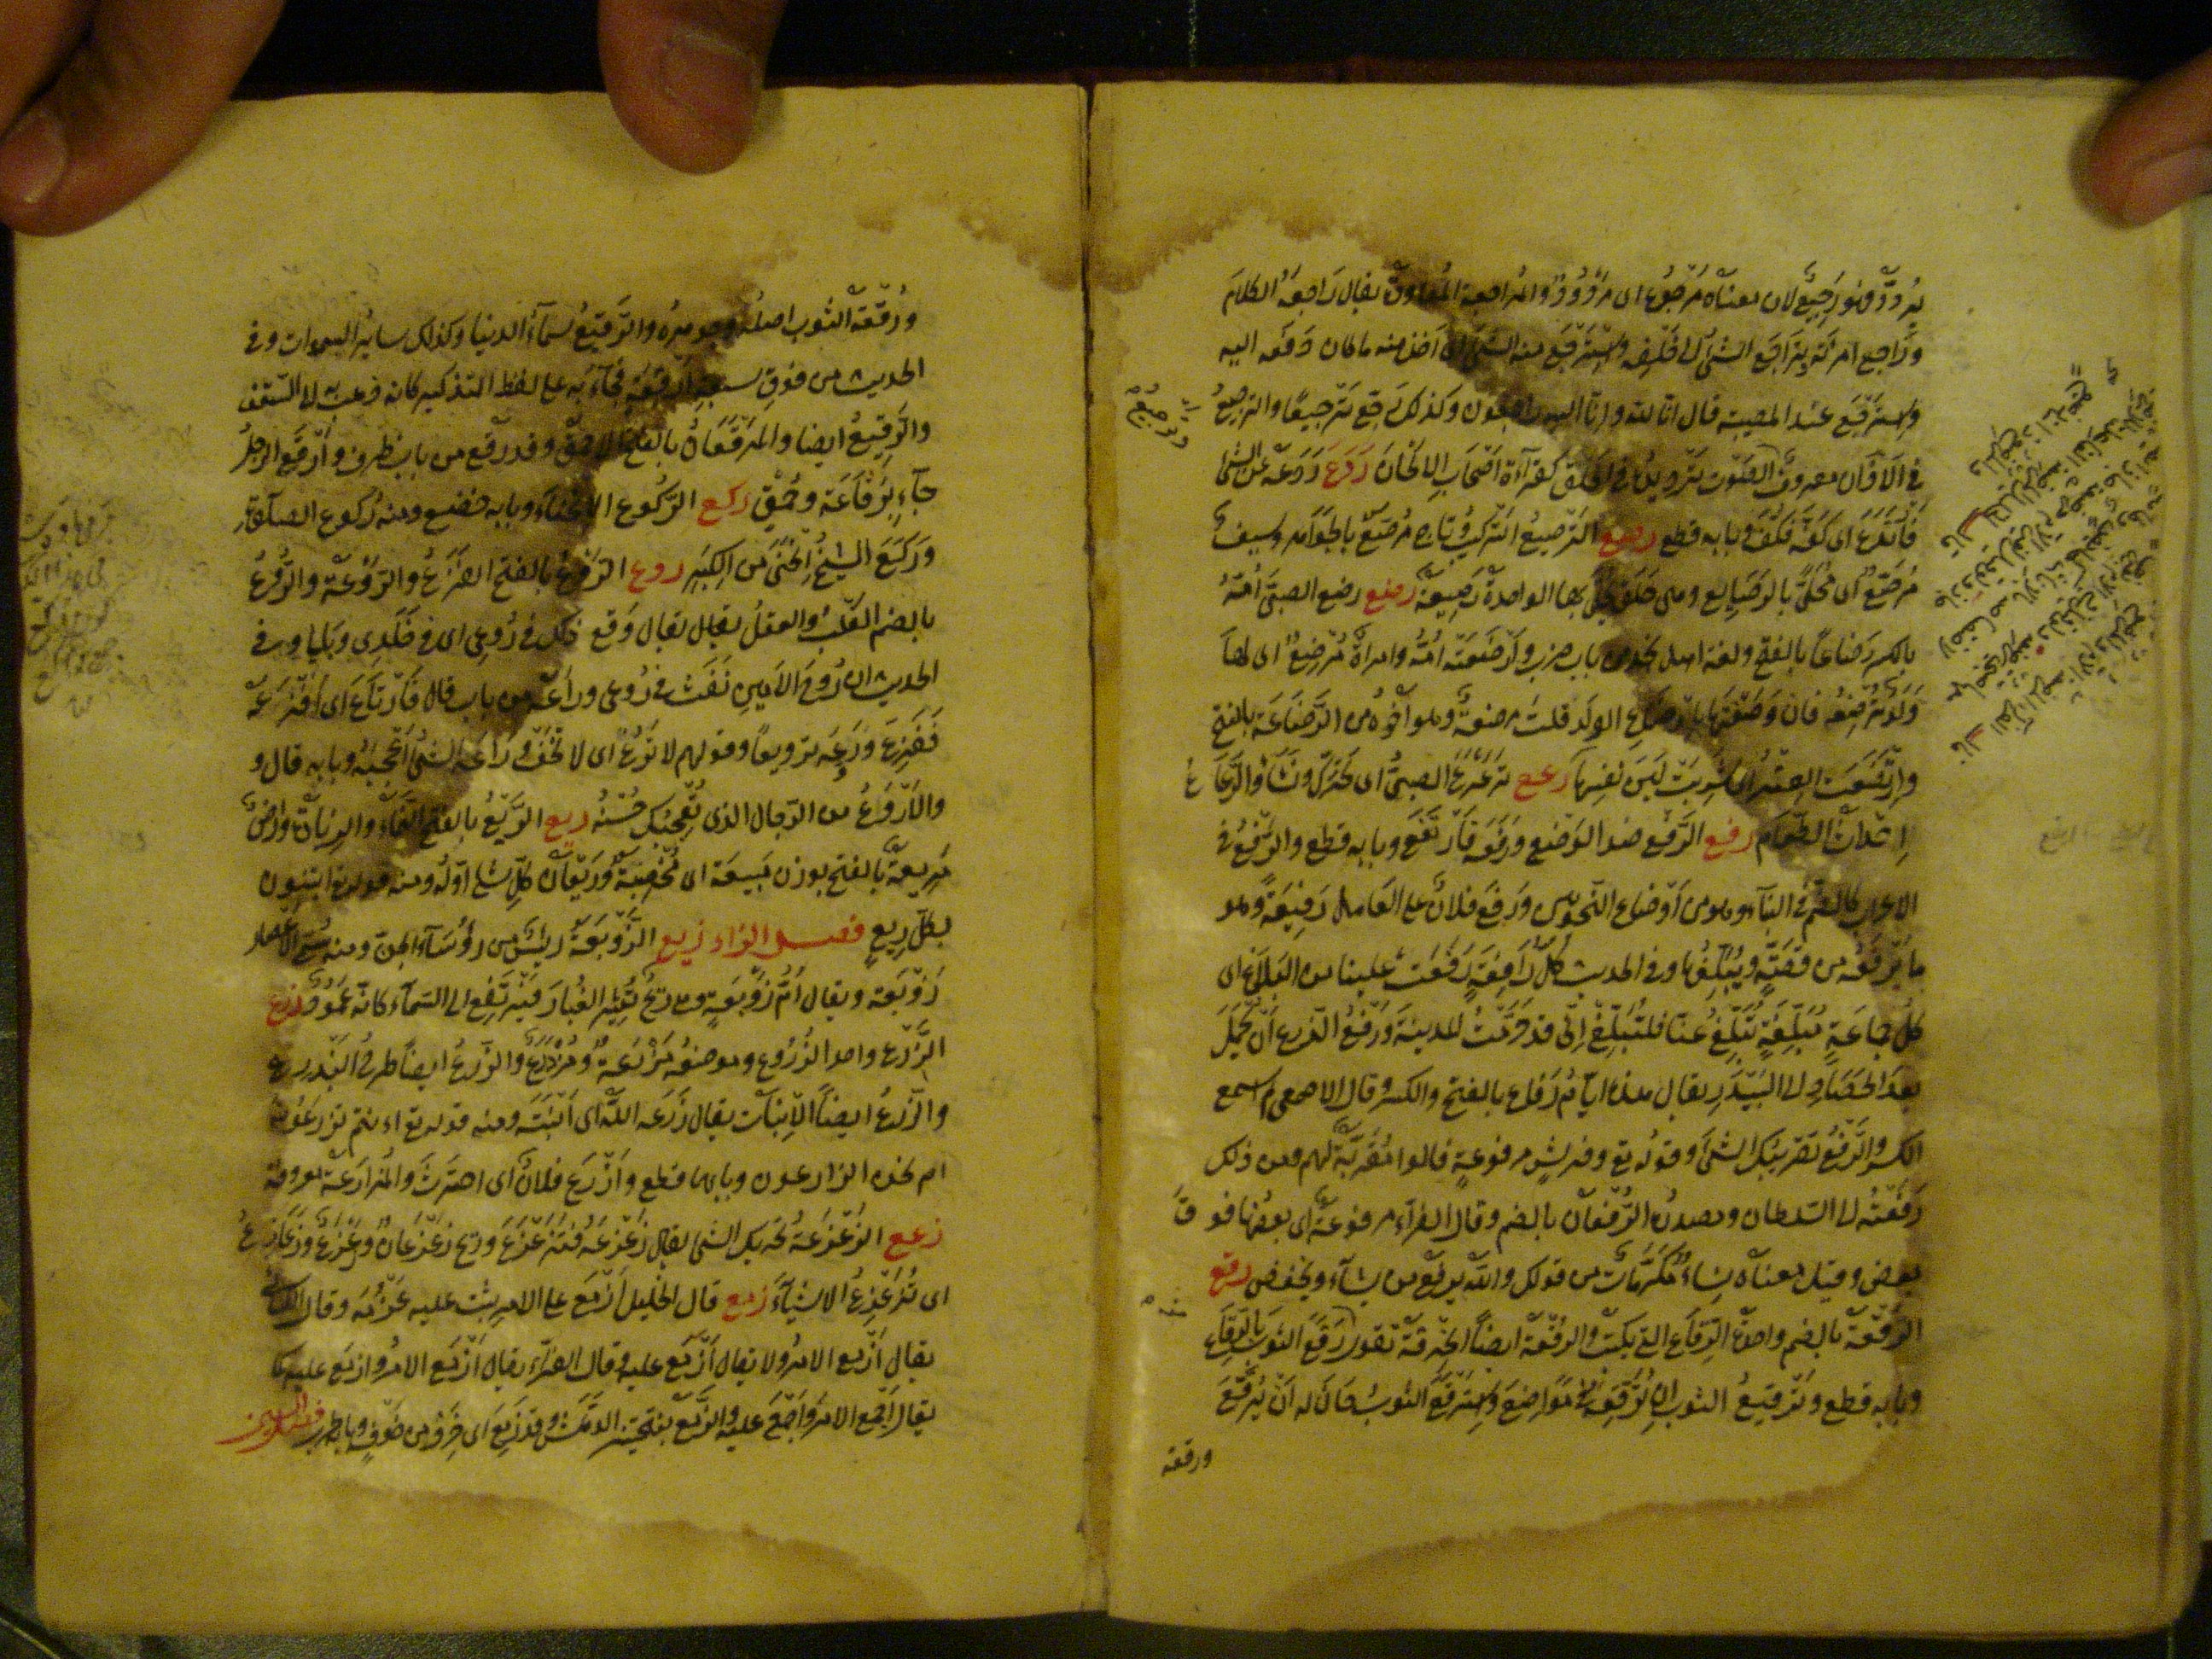 يُرَدَّدُ فهو رَجِيعٌ لان معناه مَرْجُوعٌ اى مَرْدُودٌ والمُراجعة المُعاوَدَة يقال رَاجَعَهُ الكلامَ
ورَاجع امرأته وتَرَاجَعَ الشئ الى خَلْفِه واسْتَرْجَعَ منه الشئ اى أخذ منه ما كان دَفَعَه اليه
واسترجَعَ عند المصيبة قال انا لله وإنا اليه راجعون وكذلك رَجَّعَ تَرْجِيعًا والترجِيعُ
فى الأذان معروف الصَّوت ترديدُه فى الحَلْق كقرآءة اصْحَابِ الالحَانِ رَدَعَ رَدَعَهُ عن الشئ
فَارْتَدَعَ اى كَفَّه فكَفَّ وبابه قطع رصع التَّرْصِيعُ التَّركيبُ وتاج مُرَصَّعٌ بالجَوَاهر وسيف
مُرَصَّعٌ اى مُحَلًّى بالرَّصَايِع وهى حَلَقٌ يُحَلَّى بها الواحدة رَصِيعَةٌ رضع رضع الصبىُّ أُمَّهُ
بالكسر رَضَاعًا بالفتح ولغة اهل نجد من باب ضرب وأرْضَعَتْه أُمُّه وامرأةٌ مُرْضِعٌ اى لها
وَلَدٌ تُرْضِعُه فان وَصَفْتَها بارْضَاعِ الولَد قلت مرضعةٌ وهو أخوه من الرَّضَاعَة بالفتح
وارْتَضَعَت العنزُ اى شَرِبَتْ لَبَنَ نفسِها رعع تَرَعْرَعَ الصبىُّ اى تحَرَّكَ ونَشَأَ والرَّعَاعُ
احْدَاثُ الطَّغَام رفع الرَّفْع ضد الوَضْع ورَفَعَه فَارْتَفَعَ وبابه قطع والرَّفْعُ فى
الاعراب كالضَّم فى البنآء وهو من أوْضاع النَّحْويِّين ورَفَعَ فلانٌ على العَامل رَفِيعَةً وهو
ما يَرْفَعُه من قصَّته ويُبَلِّغُها وفى الحديث كُلُّ رَافِعَةٍ رَفَعَتْ علينا من البَلاغ اى
كُلُّ جماعَةٍ مُبَلِّغَةٍ تُبَلِّغُ عنَّا فلتُبَلِّغْ إنّى قد حَرَّمْتُ المدينةَ ورَفْعُ الزّرع أنْ يُحْمَلَ
بعدَ الحَصَادِ الى البَيْدَرِ يقال هذه ايّامُ رَفَاع بالفتح والكسر وقال الاصمعى لم اسمع
الكسر والرَّفْعُ تَقْرِيبُك الشئَ وقوله تع وفرشٍ مرفوعةٍ قالوا مُقَرَّبَةٌ لهم ومن ذلك
رَفَعْتُه الى السلطان ومصدرُه الرُّفْعَان بالضم وقال الفرّآء مرفوعةٌ اى بعضُها فوقَ
بعض وقيل معناه نِسَاءٌ مُكَرَّمَاتٌ من قولك والله يرفع من يشآء ويخفض رقع
الرُّقْعَة بالضم واحدة الرِّقَاع التى تكتب والرُّقْعَة ايضاً الخِرْقَة تقول رَقَعَ الثوبَ بالرِّقَاع
وبابه قطع وتَرْقِيعُ الثوبِ ان تُرَقِّعَهُ فى مَوَاضِعَ واسْتَرْقَعَ الثوبُ حَانَ له أنْ يُرَقَّعَ
ورقعة
ورُقْعَةُ الثوب اصلُه وجوهرُه والرَّقِيعُ سمآءُ الدنيا وكذلك ساير السموات وفى
الحديث من فوقِ سبعةِ أرْقِعَةٍ فجآء به على لفظ التذكير كانه ذهب الى السَّقف
والرَّقِيعُ ايضا والمَرْقَعَانُ بالفتح الاحمقُ وقد رقع من باب ظرف وأرْقَعَ الرجلُ
جآء بِرَقَاعَة وحُمْقٍ ركع الرُّكُوع الانحنآء وبابه خضع ومنه رُكوع الصلوة
ورَكَعَ الشيخُ انْحَنَى من الكِبَرِ روع الرَّوْعُ بالفتح الفَزَعُ والرَّوْعَة والرُّوعُ
بالضم القَلْبُ والعقلُ يقال يقال وَقَع ذلك فى رُوعى اى فى خَلَدِى وبَالى وفى
الحديث ان الرُّوحَ الأمينَ نَفَثَ فى رُوعى ورَاعَهُ من باب قال فَارْتَاعَ اى أفْزَعَه
فَفَزِعَ ورَوَّعَه ترويعاً وقولهم لا تُرَعْ اى لا تَخَفْ ورَاعَه الشئُ أعْجَبَه وبابه قال و
والأرْوَعُ من الرّجال الذى يُعْجِبُك حُسْنُه ريع الرَّيْعُ بالفتح النَّمآء والزيادة وارضٌ
مَرِيعَةٌ بالفتح بوزن مَبِيعَة اى مُخْصِبَةٌ ورَيْعَانُ كلِّ شئ اوّلُه ومنه قوله تع اتبنون
بكل رِيعٍ فصل الزاء زبع الزَّوْبَعَةُ رئيسٌ من رؤسَآء الجن ومنه سُمِّى الاعصار
زَوْبَعَة ويقال أُمُّ زَوْبَعَةٍ وهى ريحٌ تُثِيرُ الغُبارَ فيَرْتَفِع الى السَّمآء كانّه عَمُودٌ زرع
الزَّرْع واحد الزُّرُوع وموضعُه مَزْرَعَةٌ ومُزْدَرَعٌ والزَّرعُ ايضاً طرحُ البَذْر
والزَّرعُ ايضاً الإنْبات يقال زَرَعَه اللهُ اى أنْبَتَه ومنه قوله تع ءانتم تزرعُونه
ام نحن الزارعون وبابهما قطع وازْدَرَع فلانٌ اى احترَثَ والمُزارَعَة معروفة
زعع الزَّعْزَعَةُ تحريك الشئ يقال زَعْزَعَه فتَزَعْزَعَ وريح زَعْزَعَانٌ وزَعْزَعٌ وزَعْزَاعٌ
اى تُزَعْزِعُ الاشياءَ زمع قال الخليل أزْمَعَ على الامر ثبت عليه عَزْمُه وقال الكسائىُّ
يقال أزْمع الامرَ ولا يقال أزْمَع عليه وقال الفرّآء يقال أزْمَع الامرَ وازمَع عليه كما
يقال أجْمَع الامرَ وأجْمَع عليه والزَّمَعُ بفتحتين الدَّهَشُ وقد زَمِعَ اى خَرِقَ من خوفٍ وبابه طرب فصل السين